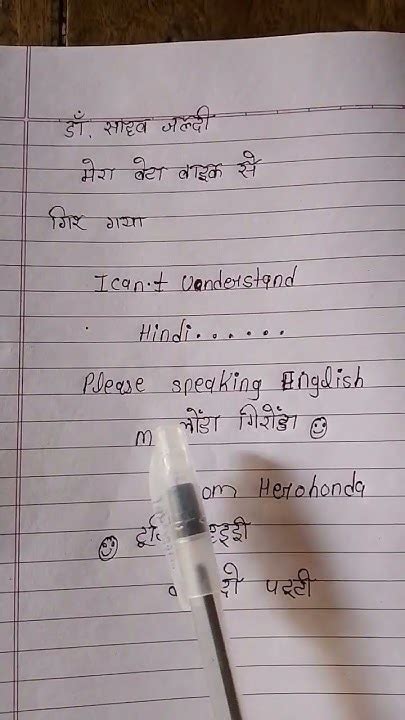 डॉ. साहव जल्दी
मेरा वेटा वाइक से
गिर गया
I can.t Uonderstand
Hindi......
Please speaking English
गिरोंडा ☺
Herohonda
☺
पट्टी